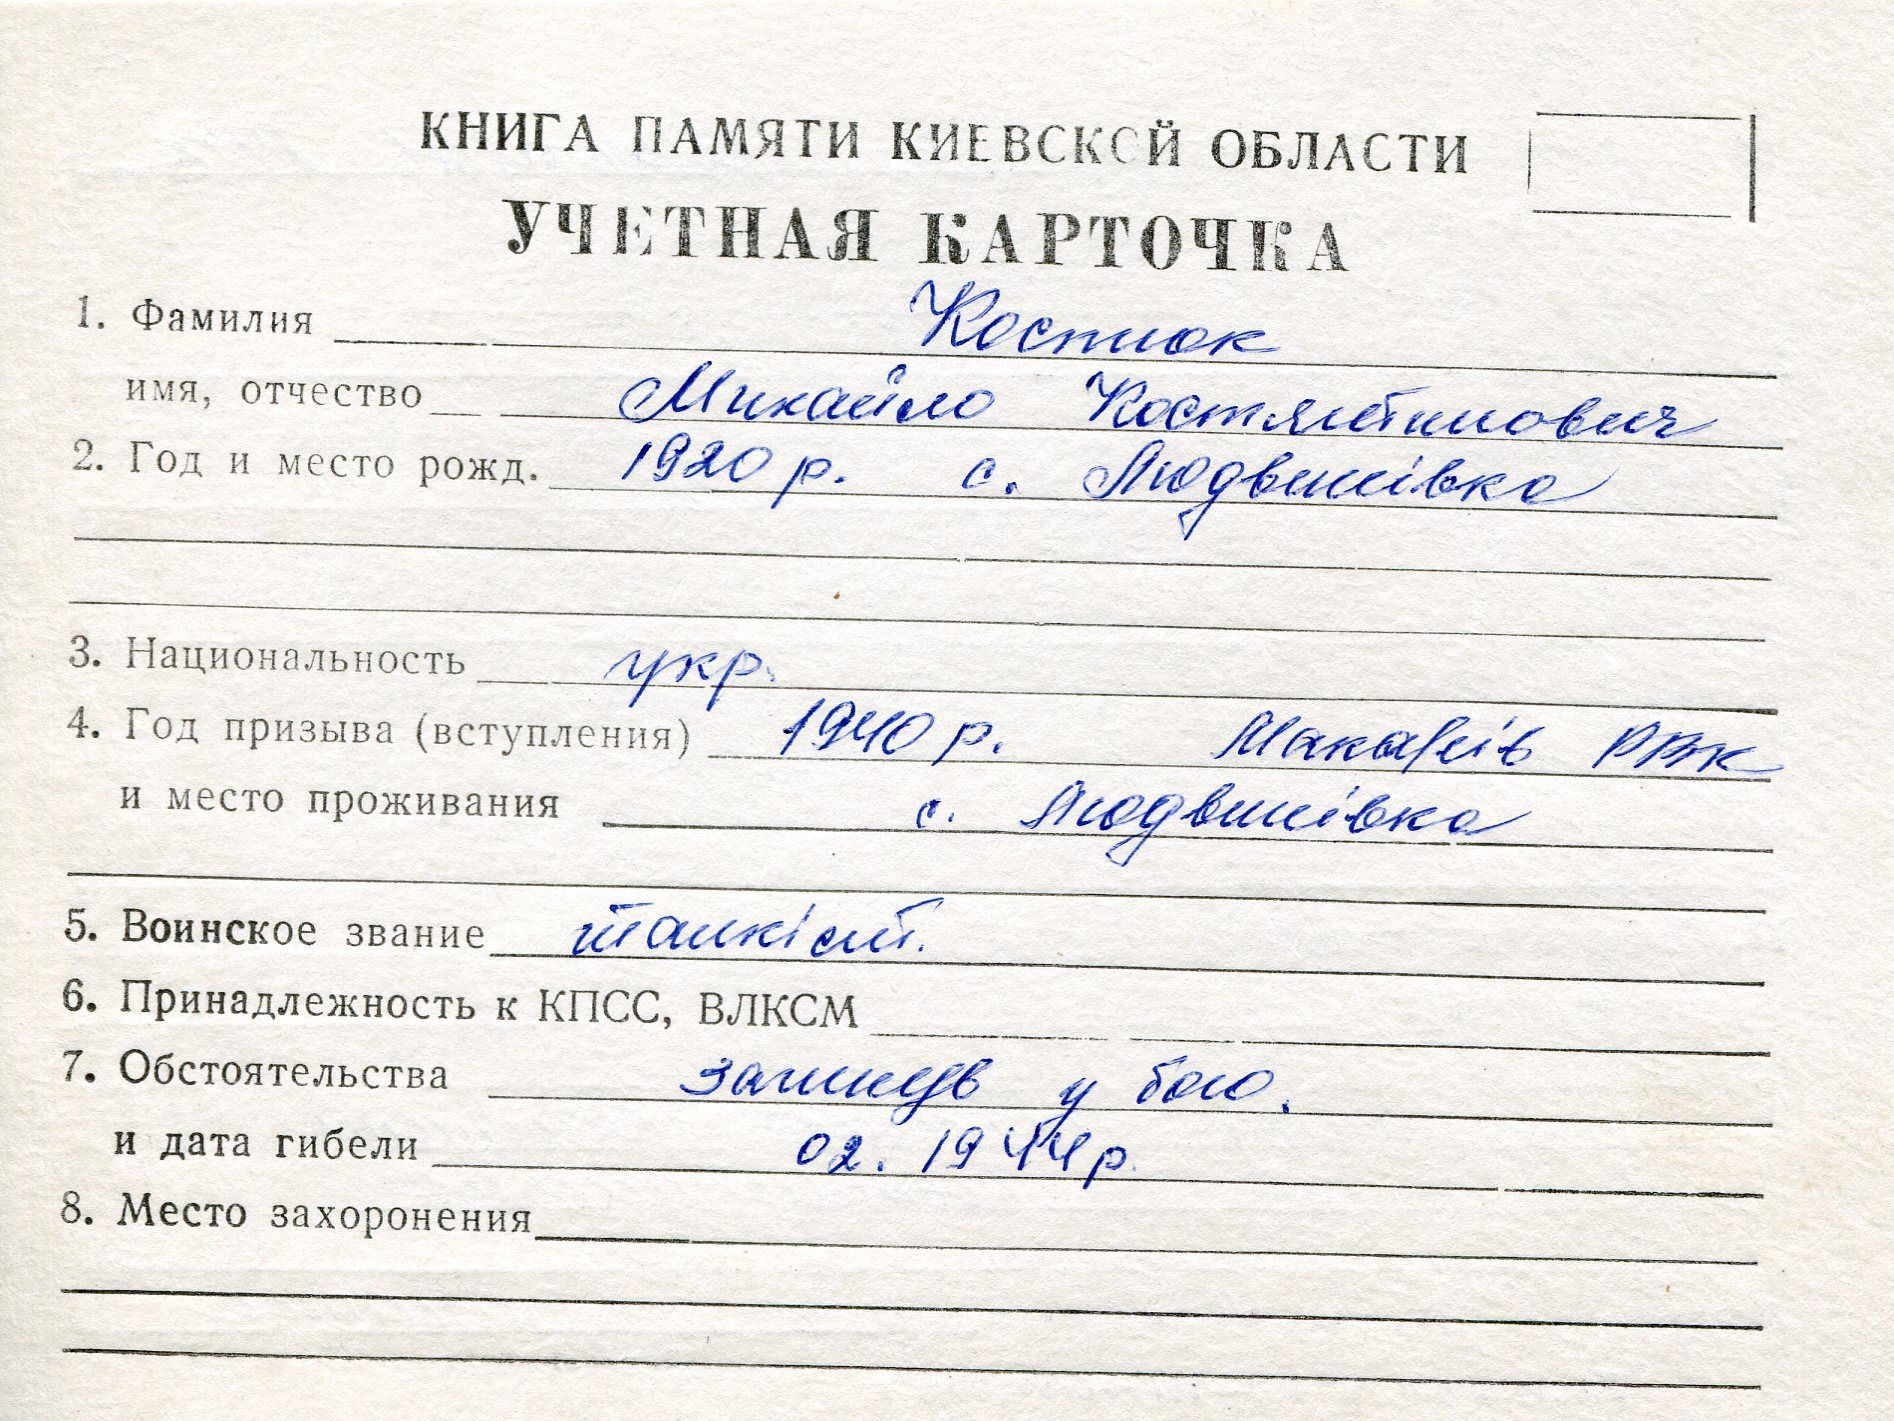 КНИГА ПАМЯТИ КИЕВСКОЙ ОБЛАСТИ
УЧЕТНАЯ КАРТОЧКА
1. Фамилия Костюк
имя, отчество Михайло Костянтинович
2. Год и место рожд. 1920 р. с. Людвинівка
3. Национальность укр.
4. Год призыва (вступления) 1940 р. Макарів РВК
и место проживания с. Людвинівка
5. Воинское звание танкіст.
6. Принадлежность к КПСС, ВЛКСМ
7. Обстоятельства загинув у бою.
и дата гибели 02. 1944 р.
8. Место захоронения